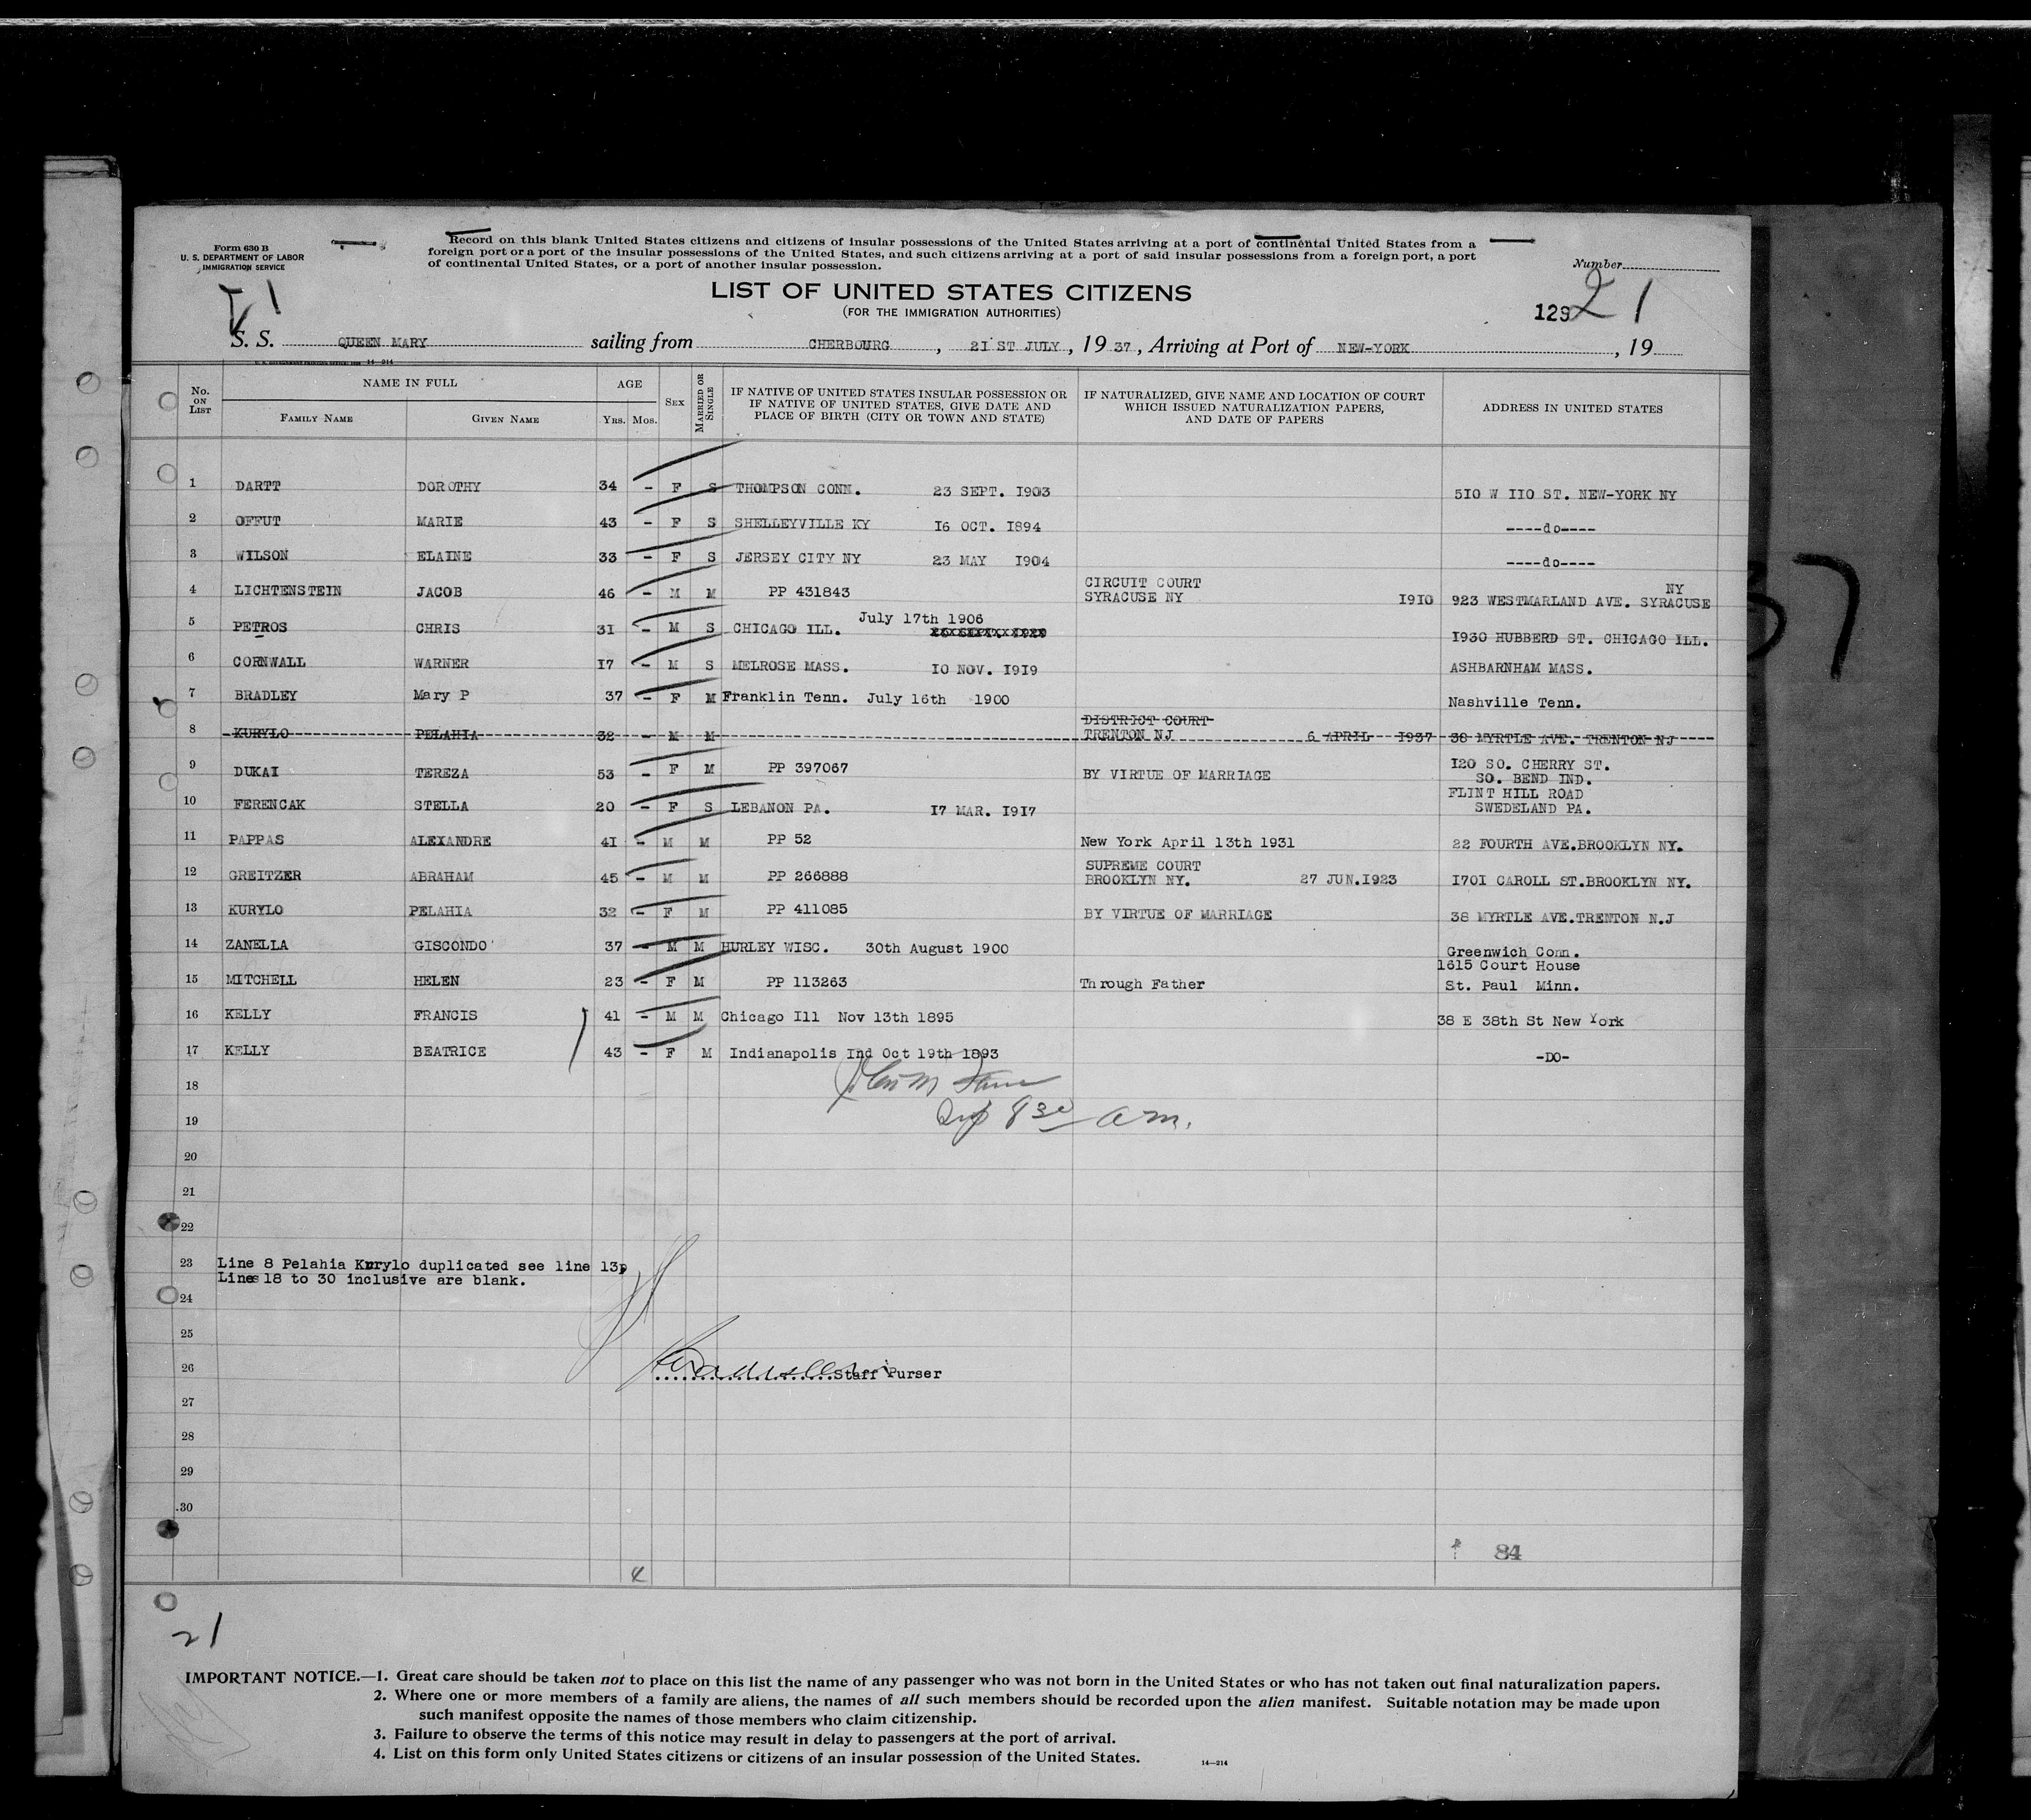 Form 630 B
U. S. DEPARTMENT OF LABOR
IMMIGRATION SERVICE
Record on this blank United States citizens and citizens of insular possessions of the United States arriving at a port of continental United States from a
foreign port or a port of the insular possessions of the United States, and such citizens arriving at a port of said insular possessions from a foreign port, a port
of continental United States, or a port of another insular possession.
Number
LIST OF UNITED STATES CITIZENS
(FOR THE IMMIGRATION AUTHORITIES)
129 21
S. S. QUEEN MARY sailing from CHERBOURG, 21 ST JULY, 19 37, Arriving at Port of NEW-YORK, 19
No. ON LIST NAME IN FULL FAMILY NAME GIVEN NAME AGE YRS. MOS. SEX MARRIED OR SINGLE IF NATIVE OF UNITED STATES INSULAR POSSESSION OR IF NATIVE OF UNITED STATES, GIVE DATE AND PLACE OF BIRTH (CITY OR TOWN AND STATE) IF NATURALIZED, GIVE NAME AND LOCATION OF COURT WHICH ISSUED NATURALIZATION PAPERS, AND DATE OF PAPERS ADDRESS IN UNITED STATES
1 DARTT DOROTHY 34 - F S THOMPSON CONN. 23 SEPT. 1903 510 W 110 ST. NEW-YORK NY
2 OFFUT MARIE 43 - F S SHELLEYVILLE KY 16 OCT. 1894 ----do----
3 WILSON ELAINE 33 - F S JERSEY CITY NY 23 MAY 1904 ----do----
4 LICHTENSTEIN JACOB 46 - M M PP 431843 CIRCUIT COURT SYRACUSE NY 1910 923 WESTMARLAND AVE. SYRACUSE NY
5 PETROS CHRIS 31 - M S CHICAGO ILL. July 17th 1906 1930 HUBBERD ST. CHICAGO ILL.
6 CORNWALL WARNER 17 - M S MELROSE MASS. 10 NOV. 1919 ASHBARNHAM MASS.
7 BRADLEY Mary P 37 - F M Franklin Tenn. July 16th 1900 Nashville Tenn.
8 KURYLO PELAHIA 32 - M M DISTRICT COURT TRENTON NJ 6 APRIL 1937 38 MYRTLE AVE. TRENTON NJ
9 DUKAI TEREZA 53 - F M PP 397067 BY VIRTUE OF MARRIAGE 120 SO. CHERRY ST. SO. BEND IND.
10 FERENCAK STELLA 20 - F S LEBANON PA. 17 MAR. 1917 FLINT HILL ROAD SWEDELAND PA.
11 PAPPAS ALEXANDRE 41 - M M PP 52 New York April 13th 1931 22 FOURTH AVE.BROOKLYN NY.
12 GREITZER ABRAHAM 45 - M M PP 266888 SUPREME COURT BROOKLYN NY. 27 JUN.1923 1701 CAROLL ST.BROOKLYN NY.
13 KURYLO PELAHIA 32 - F M PP 411085 BY VIRTUE OF MARRIAGE 38 MYRTLE AVE.TRENTON N.J
14 ZANELLA GISCONDO 37 - M M HURLEY WISC. 30th August 1900 Greenwich Conn.
15 MITCHELL HELEN 23 - F M PP 113263 Through Father 1615 Court House St. Paul Minn.
16 KELLY FRANCIS 41 - M M Chicago Ill Nov 13th 1895 38 E 38th St New York
17 KELLY BEATRICE 43 - F M Indianapolis Ind Oct 19th 1893 -DO-
18
19 8 30 am.
20
21
22
23 Line 8 Pelahia Kurylo duplicated see line 13
Lines 18 to 30 inclusive are blank.
24
25
26 Staff Purser
27
28
29
30
84
21
IMPORTANT NOTICE.—1. Great care should be taken not to place on this list the name of any passenger who was not born in the United States or who has not taken out final naturalization papers.
2. Where one or more members of a family are aliens, the names of all such members should be recorded upon the alien manifest. Suitable notation may be made upon
such manifest opposite the names of those members who claim citizenship.
3. Failure to observe the terms of this notice may result in delay to passengers at the port of arrival.
4. List on this form only United States citizens or citizens of an insular possession of the United States.
14—214
37